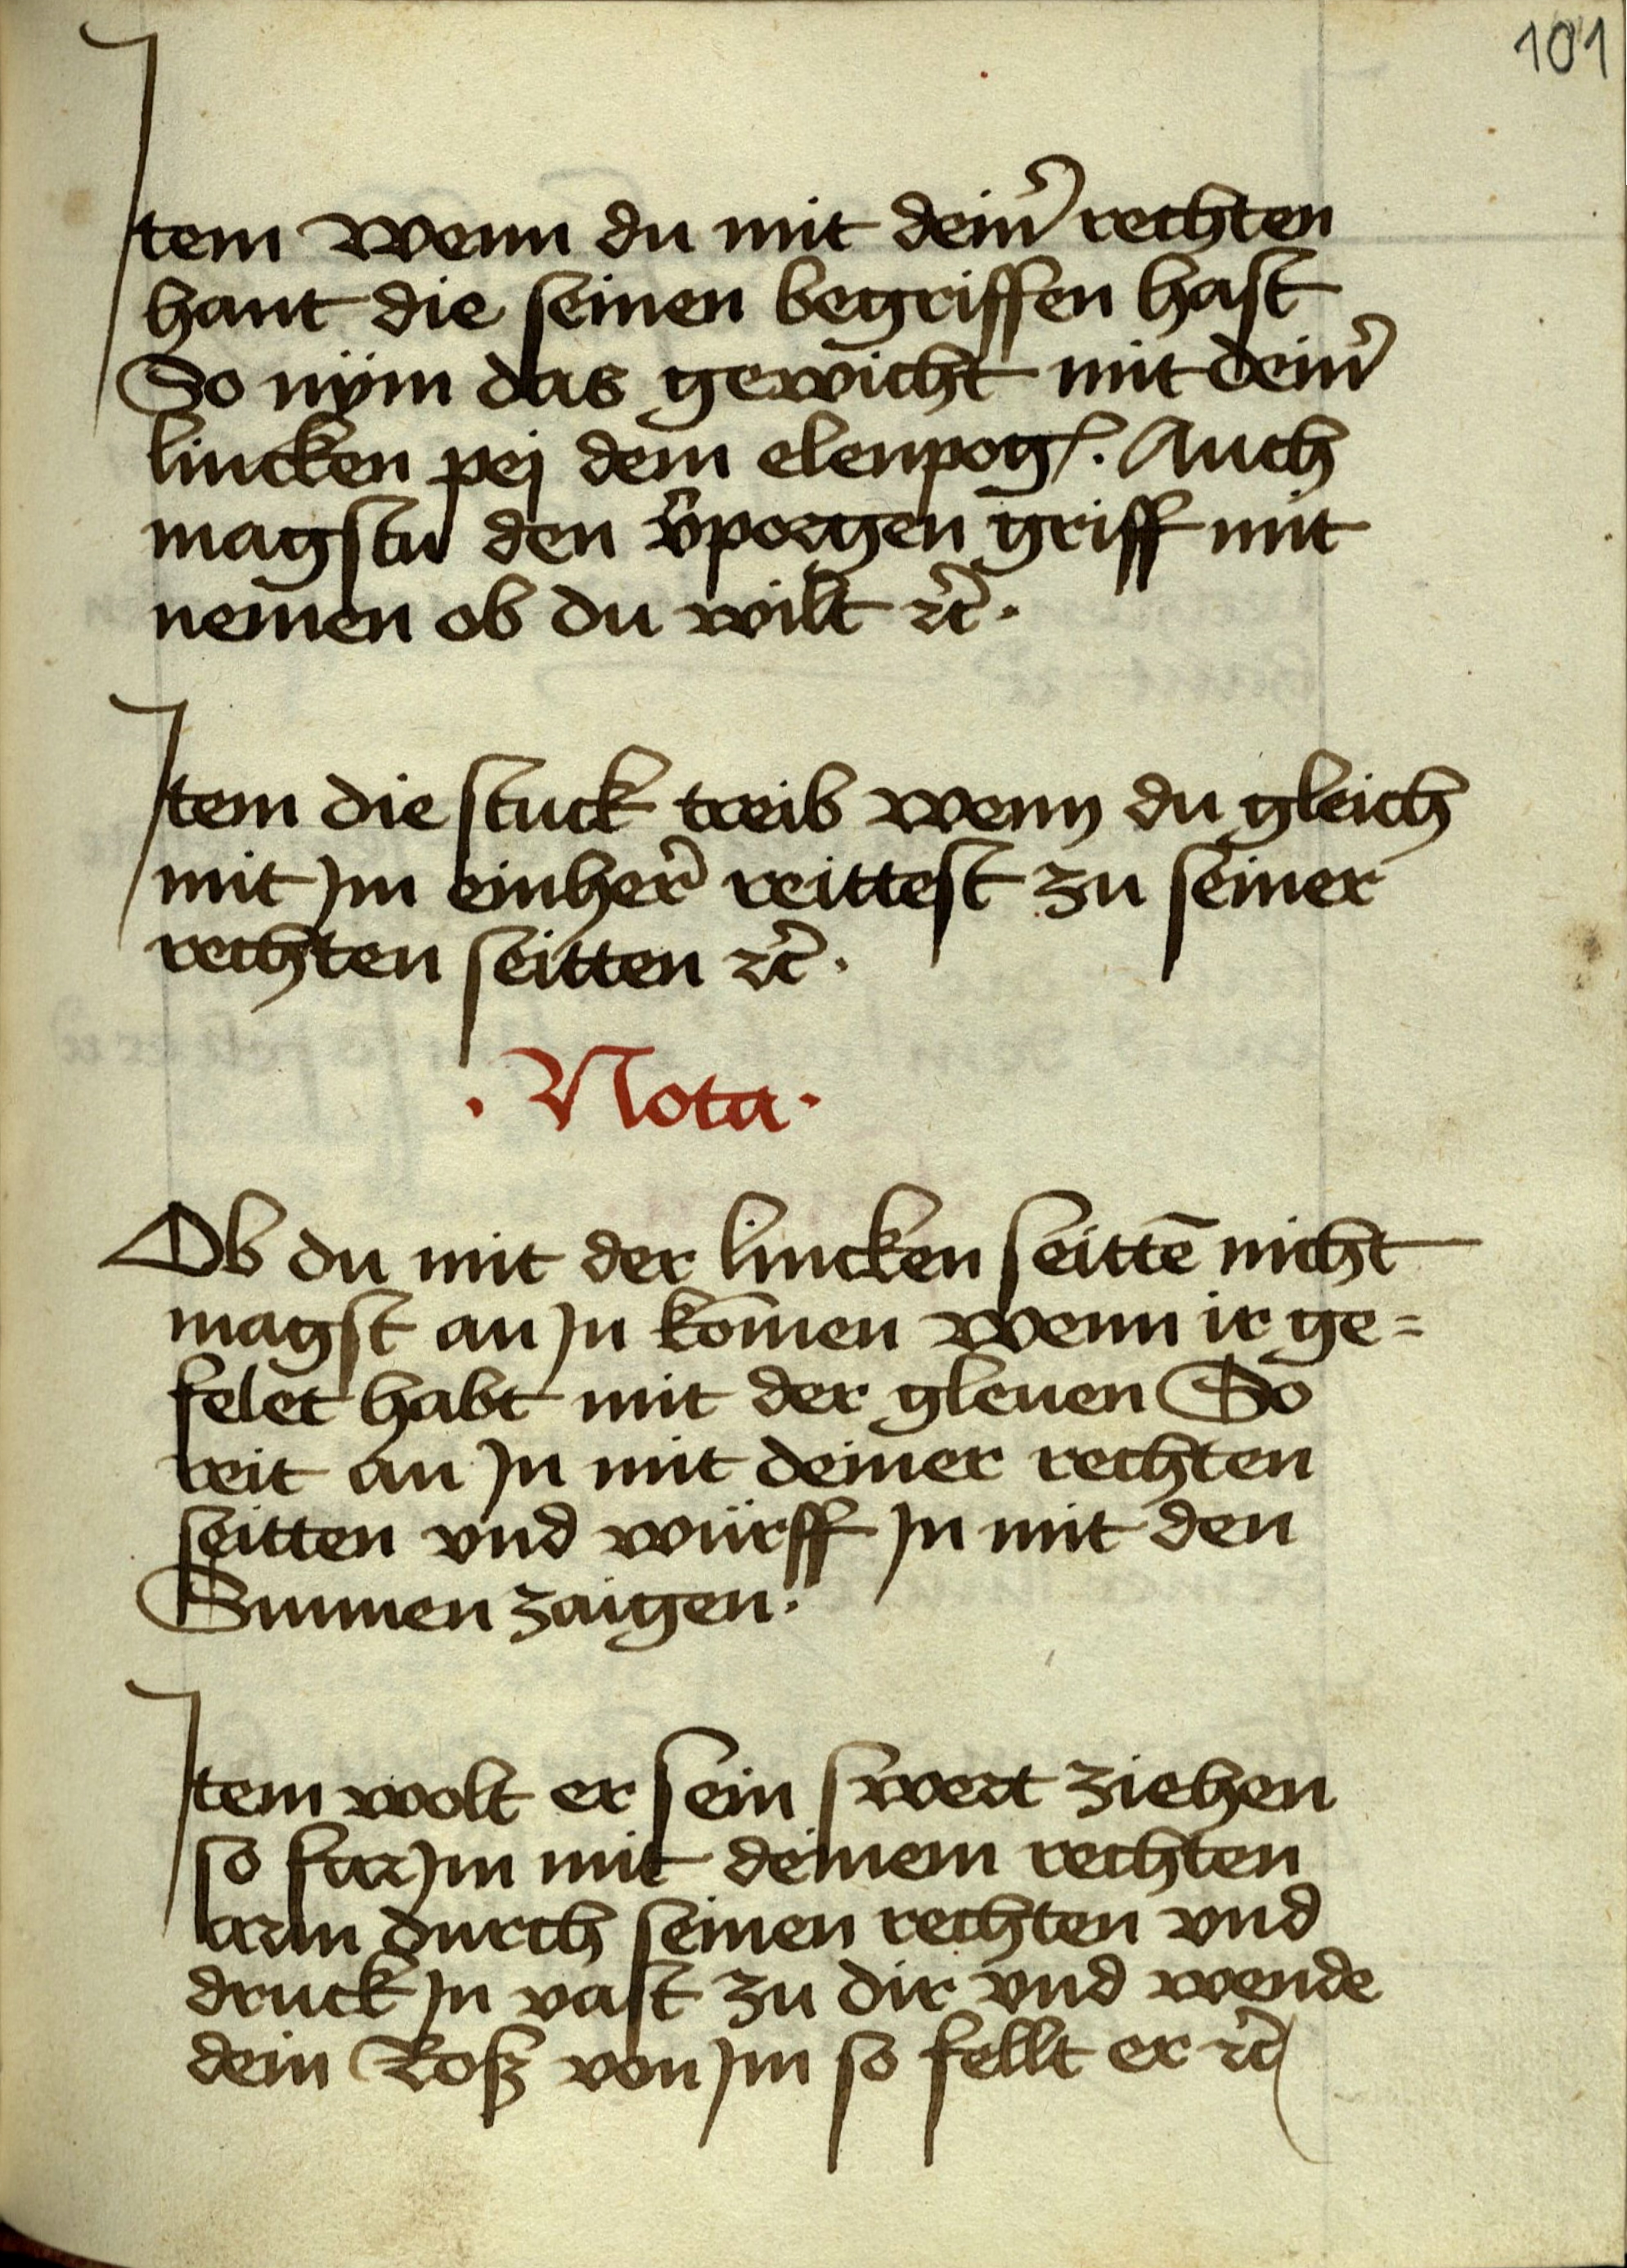 101
Item wenn du mit deinˀ rechten
hant die seinen begriffen hast
So nÿm das gewicht mit deinˀ
lincken pej dem elenpogꝭ. Auch
magstu den v̄porgen griff mit
nemen ob du wilt ꝛc̃.
Item die stuck treib wenn du gleich
mit Jm einherˀ reittest zu seiner
rechten seitten ꝛc̃.
. Nota .
Ob du mit der lincken seittē nicht
magst an Jn kōmen wenn ir ge=
felet habt mit der gleuen So
reit an Jn mit deiner rechten
seitten vnd würff Jn mit den
Sunnen zaigen.
Item wolt er sein swert ziehen
so far Jm mit deinem rechten
arm durch seinen rechten vnd
druck Jn vast zu dir vnd wende
dein Roß von Jm so fellt er ꝛc̃